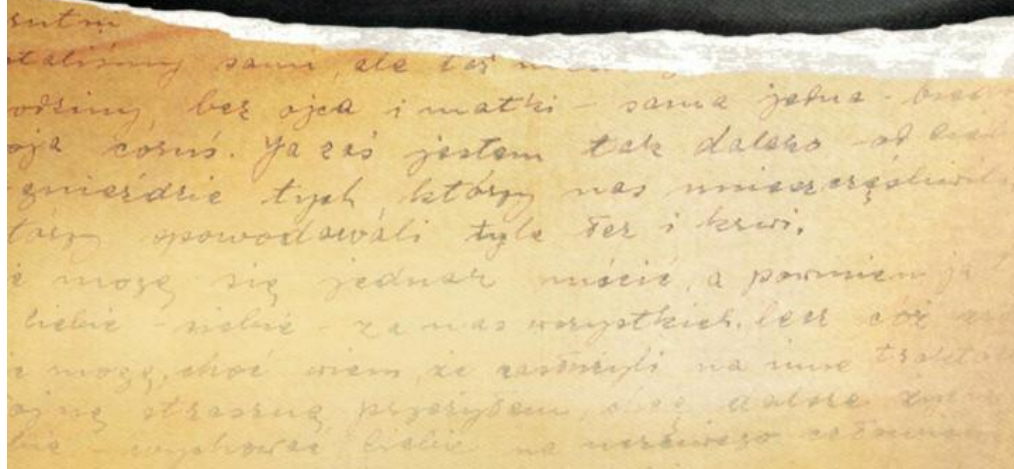 staliśmy sami, ale też
odziny, bez ojca i matki - sama jedna -
oja coruś. Ja zaś jestem tak daleko - od cie
gnieździe tych, którzy nas unieszczęśliwili
tórzy spowodowali tyle łez i krwi.
e mogę się jednak mścić, a powinien ja
ciebie - siebie - za nas wszystkich, lecz cóż
e mogę, choć wiem, że zasłużyli na inne trakto
ojnę straszną przeżyłem, chcę dalsze
bie - wychować ciebie na uczciwego